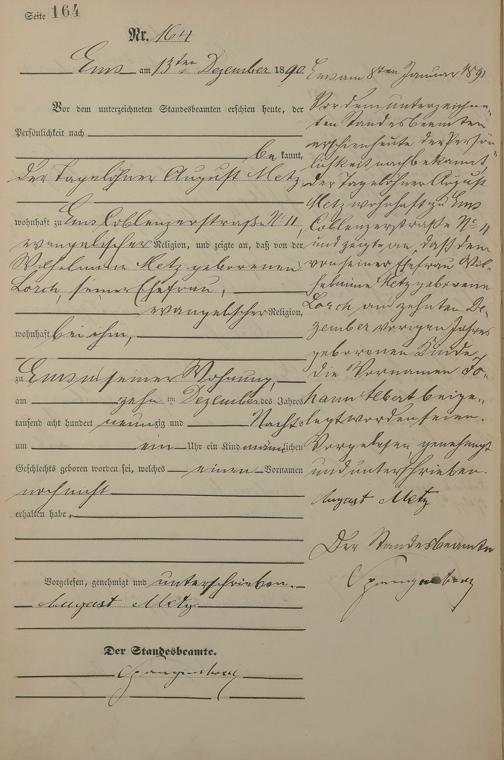 Seite 164
Nr. 164
Ems am 13ten Dezember 1890
Vor dem unterzeichneten Standesbeamten erschien heute, der
Persönlichkeit nach
bekannt,
der Tagelöhner August Metz
wohnhaft zu Ems Coblenzerstraße No 11,
evangelischer Religion, und zeigte an, daß von der
Wilhelmine Metz geborenen
Lorch, seiner Ehefrau,
evangelischer Religion,
wohnhaft bei ihm,
zu Ems in seiner Wohnung,
am zehn ten Dezember des Jahres
tausend acht hundert neunzig und Nachts
um ein Uhr ein Kind männlichen
Geschlechts geboren worden sei, welches einen Vornamen
noch nicht
erhalten habe,
Vorgelesen, genehmigt und unterschrieben.
August Metz
Der Standesbeamte.
Spangenberg
Ems am 8ten Januar 1891
Vor dem unterzeichne-
ten Standesbeamten
erschien heute der Persön-
lichkeit nach bekannt,
der Tagelöhner August
Metz wohnhaft zu Ems
Coblenzerstraße No 11
und zeigte an, daß dem
von seiner Ehefrau Wil-
helmine Metz geborene
Lorch am zehnten De-
zember vorigen Jahres
geborenen Kinde,
die Vornamen Jo-
hann Albert beige-
legt worden seien.
Vorgelesen genehmigt
und unterschrieben.
August Metz
Der Standesbeamte
Spangenberg